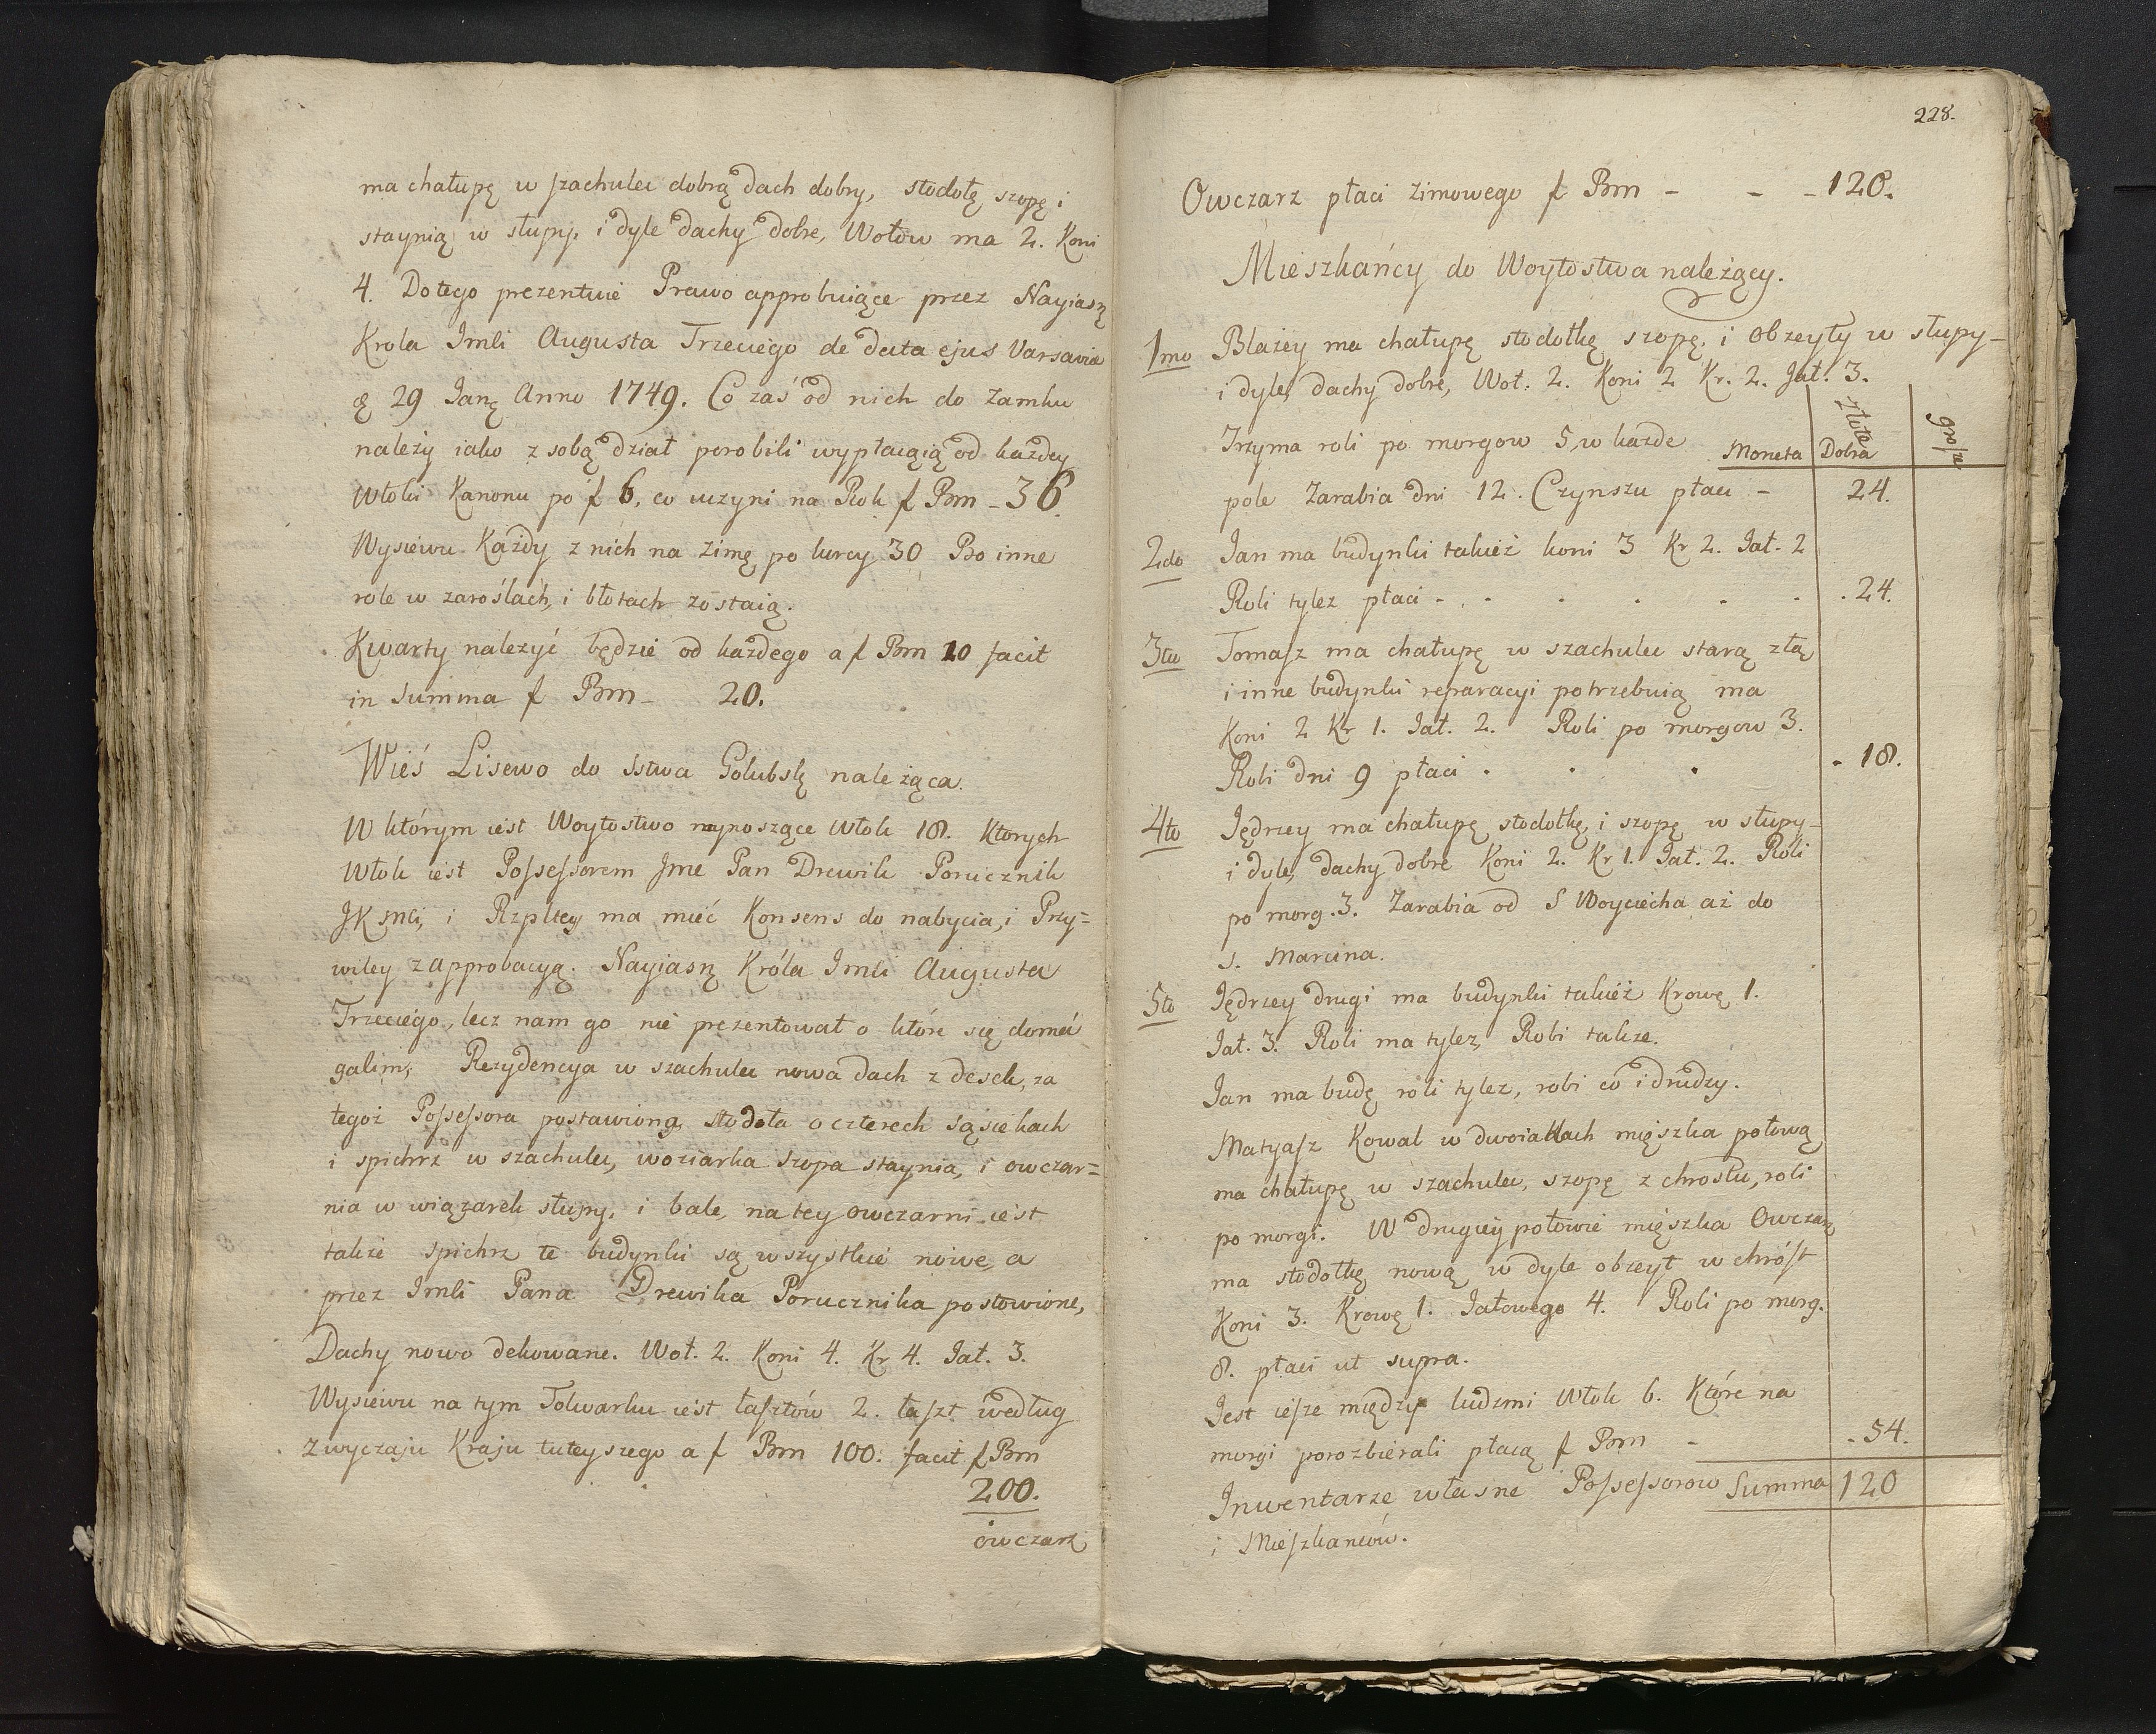 ma chałupę w szachulec dobrą dach dobry, stodołę szopę i
staynią w słupy, i dyle dachy dobre, Wołow ma 2. Koni
4. Do tego prezentuie Prawo approbuiące przez Nayiasnę
Krola Imłi Augusta Trzeciego de data ejus Varsavia
ę 29 Ianę Anno 1749. Co zaś od nich do Zamku
należy iako z sobą dział porobili wypłacaią od każdey
Włoki Kanonu po f 6, co uczyni na Rok f Bm - 36.
Wysiewu Każdy z nich na zimę po kurcy 30 Bo inne
role w zaroślach, i błotach zostaią.
Kwarty należyć będzie od każdego a f Bm 10 facit
in summa f Bm - 20.
Wieś Lisewo do sstwa Golubskę należąca.
W którym iest Woytostwo wynoszące Włok 18. Ktorych
Włok iest Possessorem Jme Pan Drewik Porucznik
JKsmći, i Rzpltey ma mieć Konsens do nabycia, i Przy=
wiley z approbacyą. Nayiasnę Króla Imłi Augusta
Trzeciego, lecz nam go nie prezentował o które się doma
galim; Rezydencya w szachulec nowa dach z desek, za
tegoż Possessora postawiona, stodoła o czterech sąsiekach
i spichrz w szachulec, woziarka szopa staynia, i owczar=
nia w wiązarek słupy, i bale, na tey owczarni iest
także spichrz te budynki są wszystkie nowe, a
przez Imłi Pana Drewika Porucznika postowione,
Dachy nowo dekowane. Woł. 2. Koni 4. Kr 4. Iał. 3.
Wysiewu na tym Folwarku iest łasztów 2. łaszt według
Zwyczaju Kraju tuteyszego a f Bm 100. facit f Bm
200.
owczarz
228.
Owczarz płaci zimowego f Bm - - - 120.
Mieszkańcy do Woytostwa należący.
1mo Błażey ma chałupę stodołkę szopę, i obzeyty w słupy-
i dyle, dachy dobre, Woł. 2. Koni 2 Kr. 2. Jał. 3.
złote grosze
Trzyma roli po morgow 5, w każde Moneta Dobra
pole Zarabia dni 12. Czynszu płaci - 24.
2do Ian ma budynki takież koni 3 Kr 2. Iał. 2
Roli tylez płaci - . . . . . . 24.
3tio Tomasz ma chałupę w szachulec starą złą
i inne budynki reparacyi potrzebuią ma
Koni 2 Kr 1. Iał. 2. Roli po morgow 3.
Robi dni 9 płaci . . . - 18.
4to Jędrzey ma chałupę stodołkę, i szopę w słupy-
i dyle, dachy dobre Koni 2. Kr 1. Iał. 2. Roli
po morg. 3. Zarabia od S Woyciecha aż do
s. Marcina.
5to Jędrzey drugi ma budynki takież Krowę 1.
Iał. 3. Roli ma tylez, Robi także.
Ian ma budę roli tylez, robi co i drudzy.
Matyasz Kowal w dwoiakach mięszka połową
ma chałupę w szachulec, szopę z chrostu, roli
po morgi. W drugiey połowie mięszka Owczarz
ma stodołkę nową w dyle obzeyt w chróst
Koni 3. Krowę 1. Iałowego 4. Roli po morg.
8. płaci ut supra.
Jest iesze między ludzmi Włok 6. Które na
morgi porozbierali płacą f Bm - - 54.
Inwentarze własne Possessorow Summa 120
i Mieszkancow.